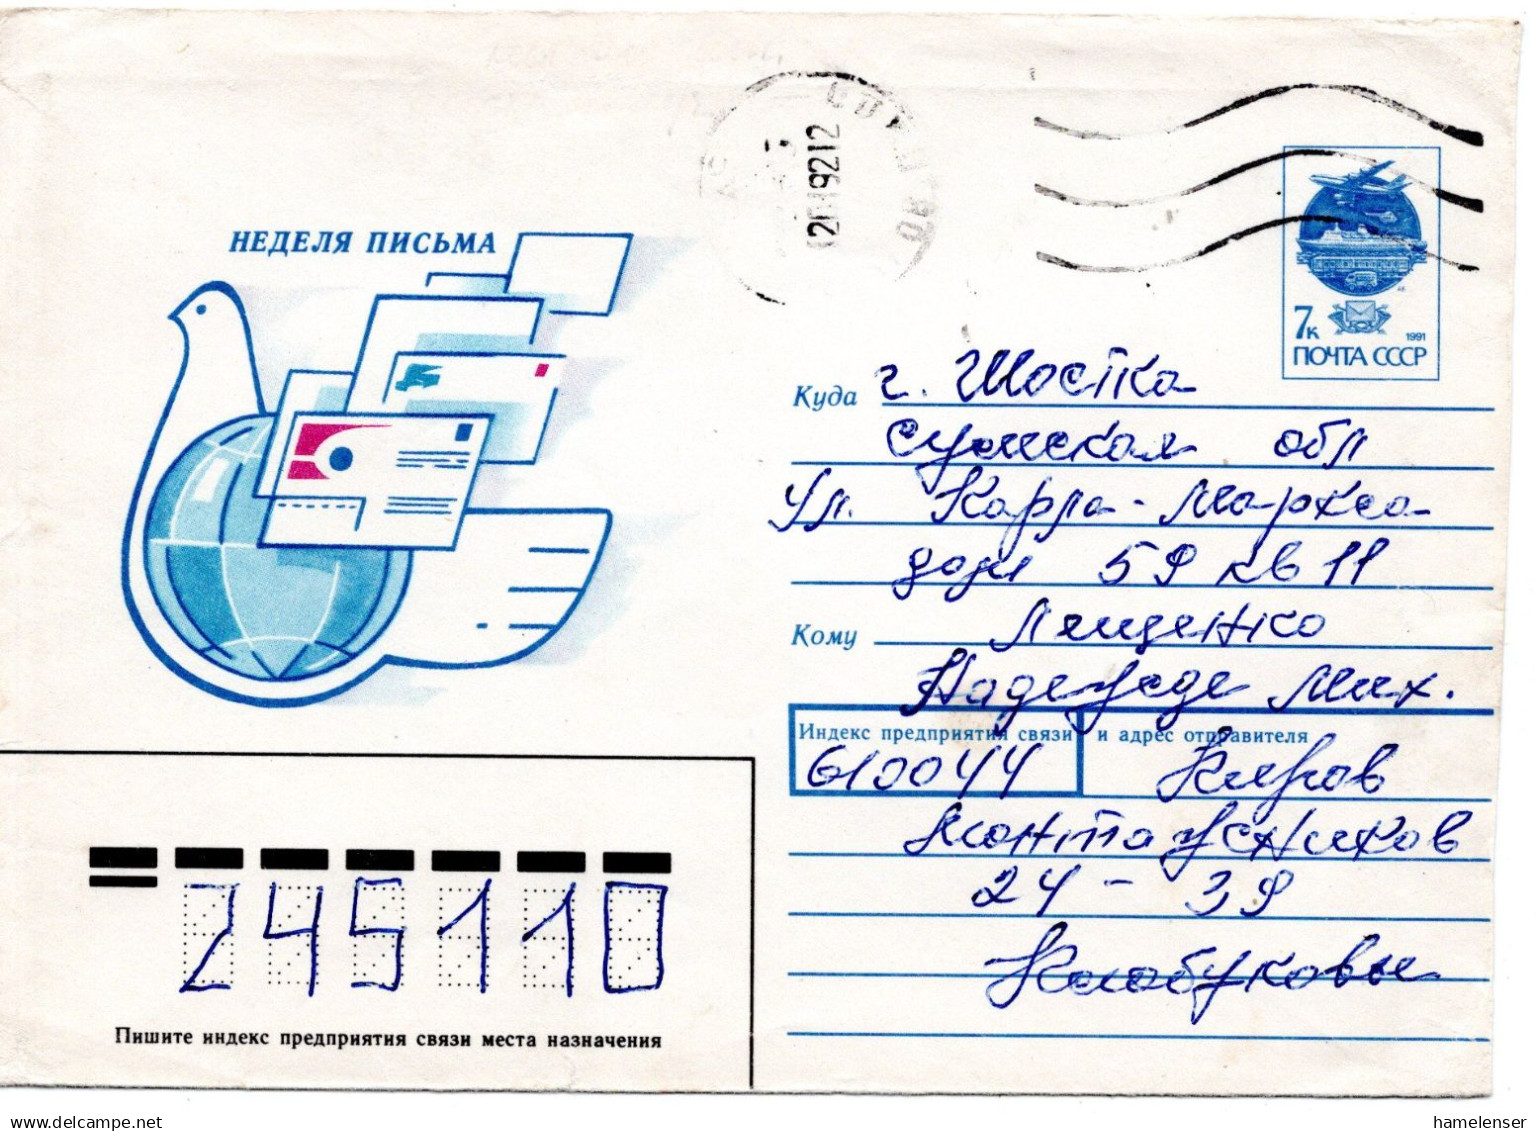 НЕДЕЛЯ ПИСЬМА
7к
1991
ПОЧТА СССР
Куда г. Шостка
Сумская обл
Ул. Карла-Маркса
дом 59 кв 11
Кому Лещенко
Надежде Мих.
Индекс предприятия связи и адрес отправителя
610044 Киров
Монтажников
24 - 39
Колобуковы
245110
Пишите индекс предприятия связи места назначения
hamelenser